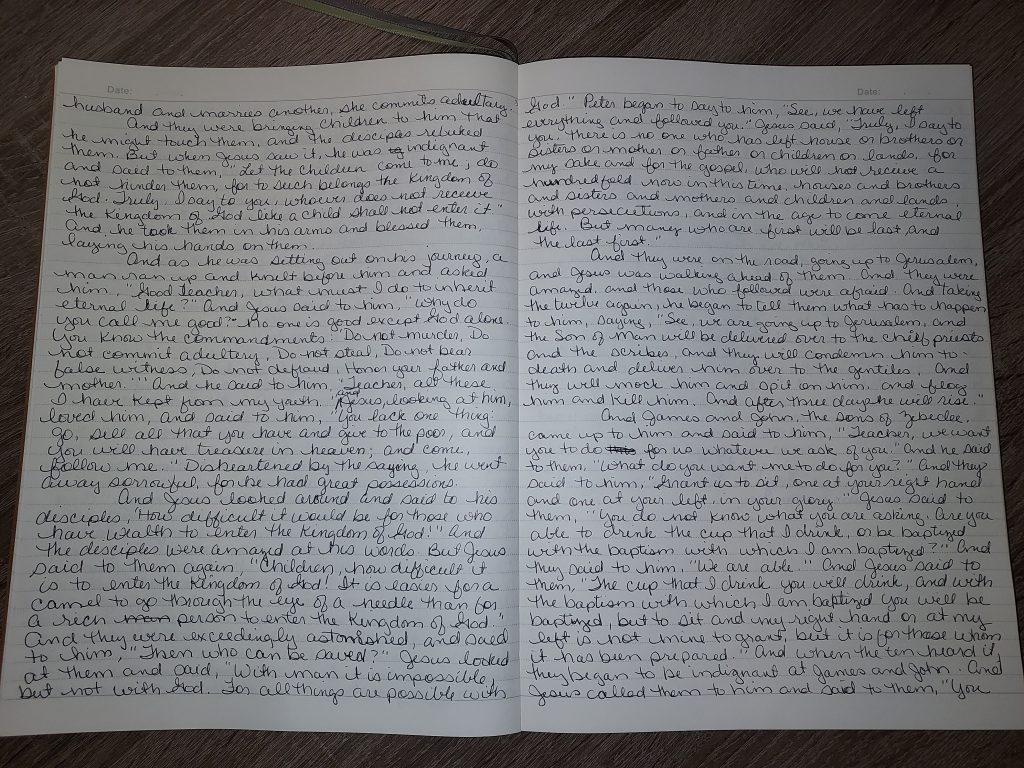 Date:
husband and marries another, she commits adultary."
And they were bringing children to him that
he might touch them, and the disciples rebuked
them. But when Jesus saw it, he was indignant
and said to them, "Let the children come to me; do
not hinder them, for to such belongs the Kingdom of
God. Truly, I say to you, whoever does not receive
the Kingdom of God like a child shall not enter it."
And he took them in his arms and blessed them,
laying his hands on them.
And as he was setting out on his journey, a
man ran up and knelt before him and asked
him, "Good Teacher, what must I do to inherit
eternal life?" And Jesus said to him, "Why do
you call me good? No one is good except God alone.
You know the commandments: 'Do not murder, Do
not commit adultery, Do not steal, Do not bear
false witness, Do not defraud, Honor your father and
mother.'" And he said to him, "Teacher, all these
I have kept from my youth." And Jesus, looking at him,
loved him, and said to him, "You lack one thing:
go, sell all that you have and give to the poor, and
you will have treasure in heaven; and come,
follow me." Disheartened by the saying, he went
away sorrowful, for he had great possessions.
And Jesus looked around and said to his
disciples, "How difficult it would be for those who
have wealth to enter the Kingdom of God!" And
the disciples were amazed at his words. But Jesus
said to them again, "Children, how difficult it
is to enter the Kingdom of God! It is easier for a
camel to go through the eye of a needle than for
a rich man person to enter the Kingdom of God."
And they were exceedingly astonished, and said
to him, "Then who can be saved?" Jesus looked
at them and said, "With man it is impossible,
but not with God. For all things are possible with
Date:
God." Peter began to say to him, "See, we have left
everything and followed you." Jesus said, "Truly, I say to
you, there is no one who has left house or brothers or
sisters or mother or father or children or lands, for
my sake and for the gospel, who will not receive a
hundredfold now in this time, houses and brothers
and sisters and mothers and children and lands,
with persecutions, and in the age to come eternal
life. But many who are first will be last, and
the last first."
And they were on the road, going up to Jerusalem,
and Jesus was walking ahead of them. And they were
amazed, and those who followed were afraid. And taking
the twelve again, he began to tell them what has to happen
to him, saying, "See, we are going up to Jerusalem, and
the Son of Man will be delivered over to the chief priests
and the scribes, and they will condemn him to
death and deliver him over to the gentiles. And
they will mock him and spit on him, and flog
him and kill him. And after three days he will rise."
And James and John, the sons of Zebedee,
came up to him and said to him, "Teacher, we want
you to do for us whatever we ask of you." And he said
to them, "What do you want me to do for you?" And they
said to him, "Grant us to sit, one at your right hand
and one at your left, in your glory." Jesus said to
them, "You do not know what you are asking. Are you
able to drink the cup that I drink, or be baptized
with the baptism with which I am baptized?" And
they said to him, "We are able." And Jesus said to
them, "The cup that I drink you will drink, and with
the baptism with which I am baptized you will be
baptized, but to sit and my right hand or at my
left is not mine to grant, but it is for those whom
it has been prepared." And when the ten heard it,
they began to be indignant at James and John. And
Jesus called them to him and said to them, "You